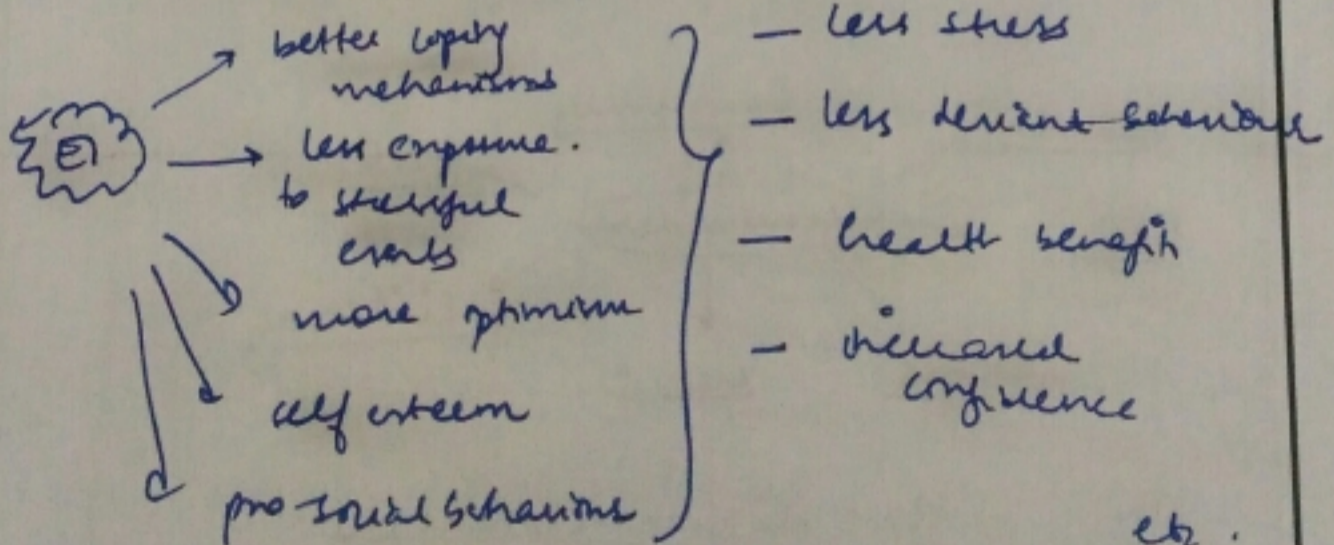 EI
better coping
mechanisms
less exposure.
to stressful
events
more optimism
self esteem
pro-social behaviours
— less stress
— less deviant behaviour
— health benefits
— increased
confidence
etc.